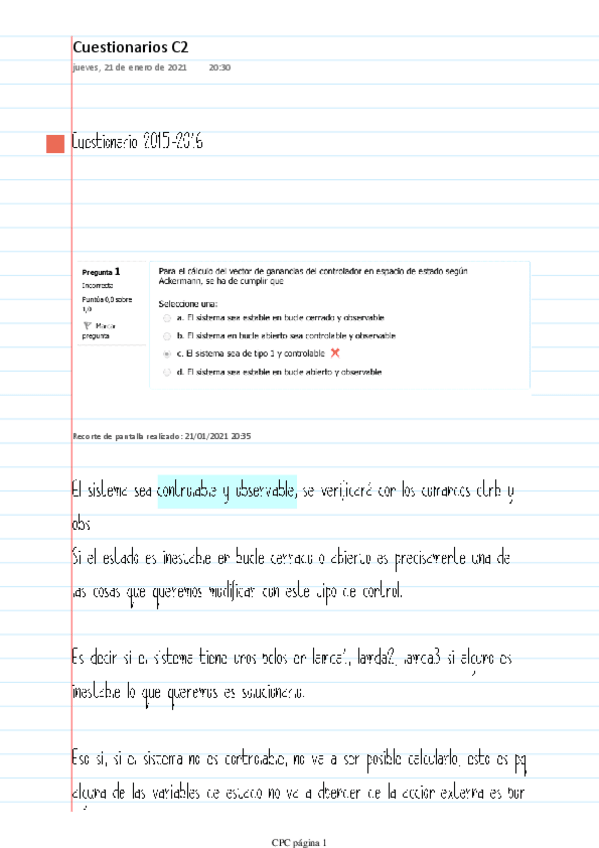 Cuestionarios C2
jueves, 21 de enero de 2021 20:30
Cuestionario 2015-2016
Pregunta 1
Incorrecta
Puntúa 0,0 sobre
1,0
Marcar
pregunta
Para el cálculo del vector de ganancias del controlador en espacio de estado según
Ackermann, se ha de cumplir que
Seleccione una:
a. El sistema sea estable en bucle cerrado y observable
b. El sistema en bucle abierto sea controlable y observable
c. El sistema sea de tipo 1 y controlable
d. El sistema sea estable en bucle abierto y observable
Recorte de pantalla realizado: 21/01/2021 20:35
El sistema sea controlable y observable, se verificará con los comandos ctrb y
obs
Si el estado es inestable en bucle cerrado o abierto es precisamente una de
las cosas que queremos modificar con este tipo de control.
Es decir si el sistema tiene unos polos en lamda1, lamda2, lamda3 si alguno es
inestable lo que queremos es solucionarlo.
Eso si, si el sistema no es controlable, no va a ser posible calcularlo, esto es pq
alguna de las variables de estado no va a depender de la accion externa es por
CPC página 1